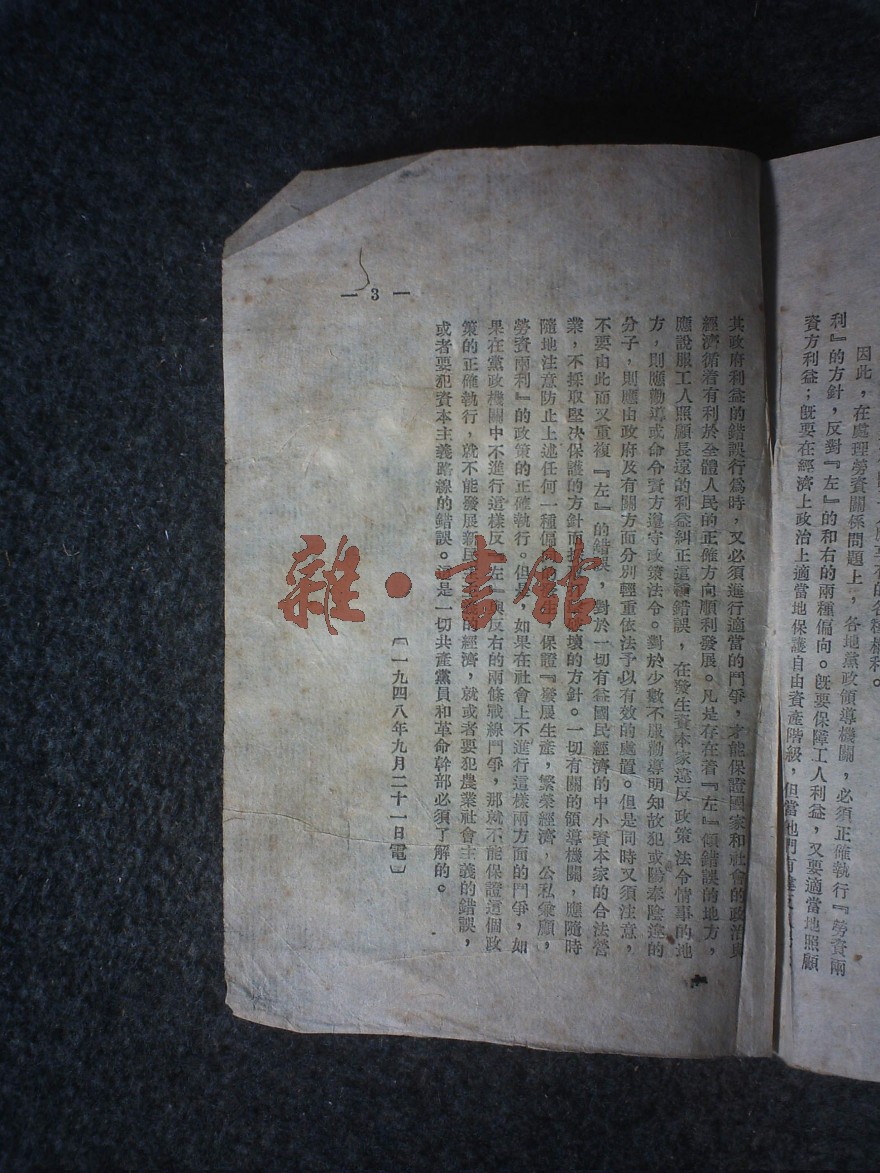 因此，在處理勞資關係問題上，各地黨政領導機關，必須正確執行『勞資兩
利』的方針，反對『左』的和右的兩種偏向。旣要保障工人利益，又要適當地照顧
資方利益；旣要在經濟上政治上適當地保護自由資產階級，但當他們有
其政府利益的錯誤行爲時，又必須進行適當的鬥爭，才能保證國家和社會的政治與
經濟循着有利於全體人民的正確方向順利發展。凡是存在着『左』傾錯誤的地方，
應說服工人照顧長遠的利益糾正這種錯誤，在發生資本家違反政策法令情事的地
方，則應勸導或命令資方遵守政策法令。對於少數不服勸導明知故犯或陽奉陰違的
分子，則應由政府及有關方面分別輕重依法予以有效的處置。但是同時又須注意，
不要由此而又重複『左』的錯誤，對於一切有益國民經濟的中小資本家的合法營
業，不採取堅决保護的方針而採壞的方針。一切有關的領導機關，應隨時
隨地注意防止上述任何一種偏保證『發展生產，繁榮經濟，公私兼顧，
勞資兩利』的政策的正確執行。但是，如果在社會上不進行這樣兩方面的鬥爭，如
果在黨政機關中不進行這樣反『左』與反右的兩條戰線鬥爭，那就不能保證這個政
策的正確執行，就不能發展新民的經濟，就或者要犯農業社會主義的錯誤，
或者要犯資本主義路線的錯誤。這是一切共產黨員和革命幹部必須了解的。
〔一九四八年九月二十一日電〕
— 3 —
雜·書館